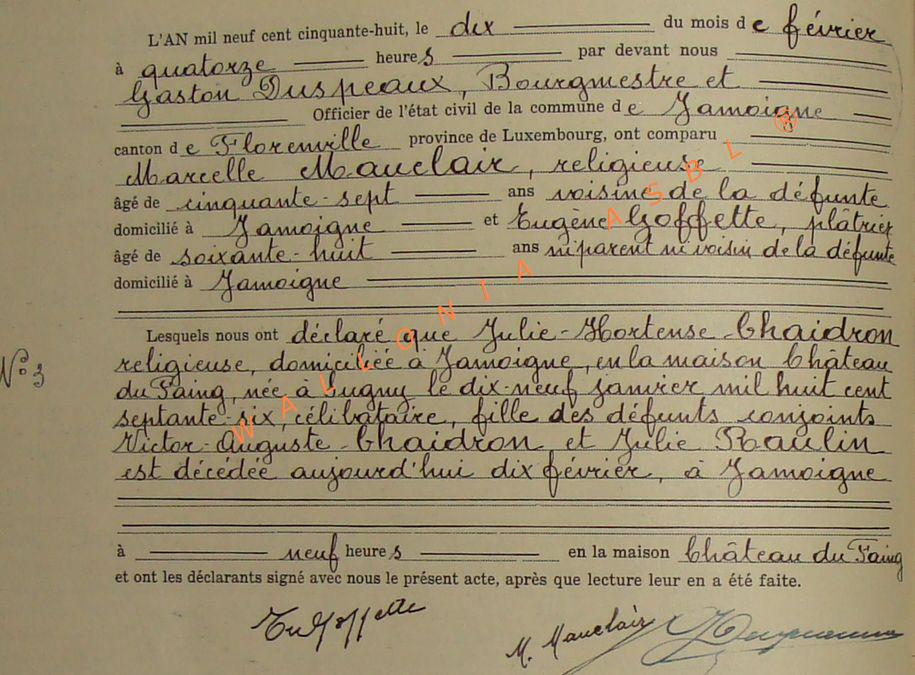 L'AN mil neuf cent cinquante-huit, le dix du mois de février
à quatorze heures par devant nous
Gaston Duspeaux, Bourgmestre et
Officier de l'état civil de la commune de Jamoigne
canton de Florenville province de Luxembourg, ont comparu
Marcelle Mauclair, religieuse
âgé de cinquante-sept ans voisine de la défunte
domicilié à Jamoigne et Eugène Goffette, plâtrier
âgé de soixante-huit ans ni parent ni voisin de la défunte
domicilié à Jamoigne
Lesquels nous ont déclaré que Julie-Hortense Chaidron
N° 3
religieuse, domiciliée à Jamoigne, en la maison Château
du Faing, née à Lugny le dix-neuf janvier mil huit cent
septante-six, célibataire, fille des défunts conjoints
Victor-Auguste Chaidron et Julie Raulin
est décédée aujourd'hui dix février, à Jamoigne
à neuf heures en la maison Château du Faing
et ont les déclarants signé avec nous le présent acte, après que lecture leur en a été faite.
Eug Goffette
M. Mauclair
WALLONIA ASBL ®